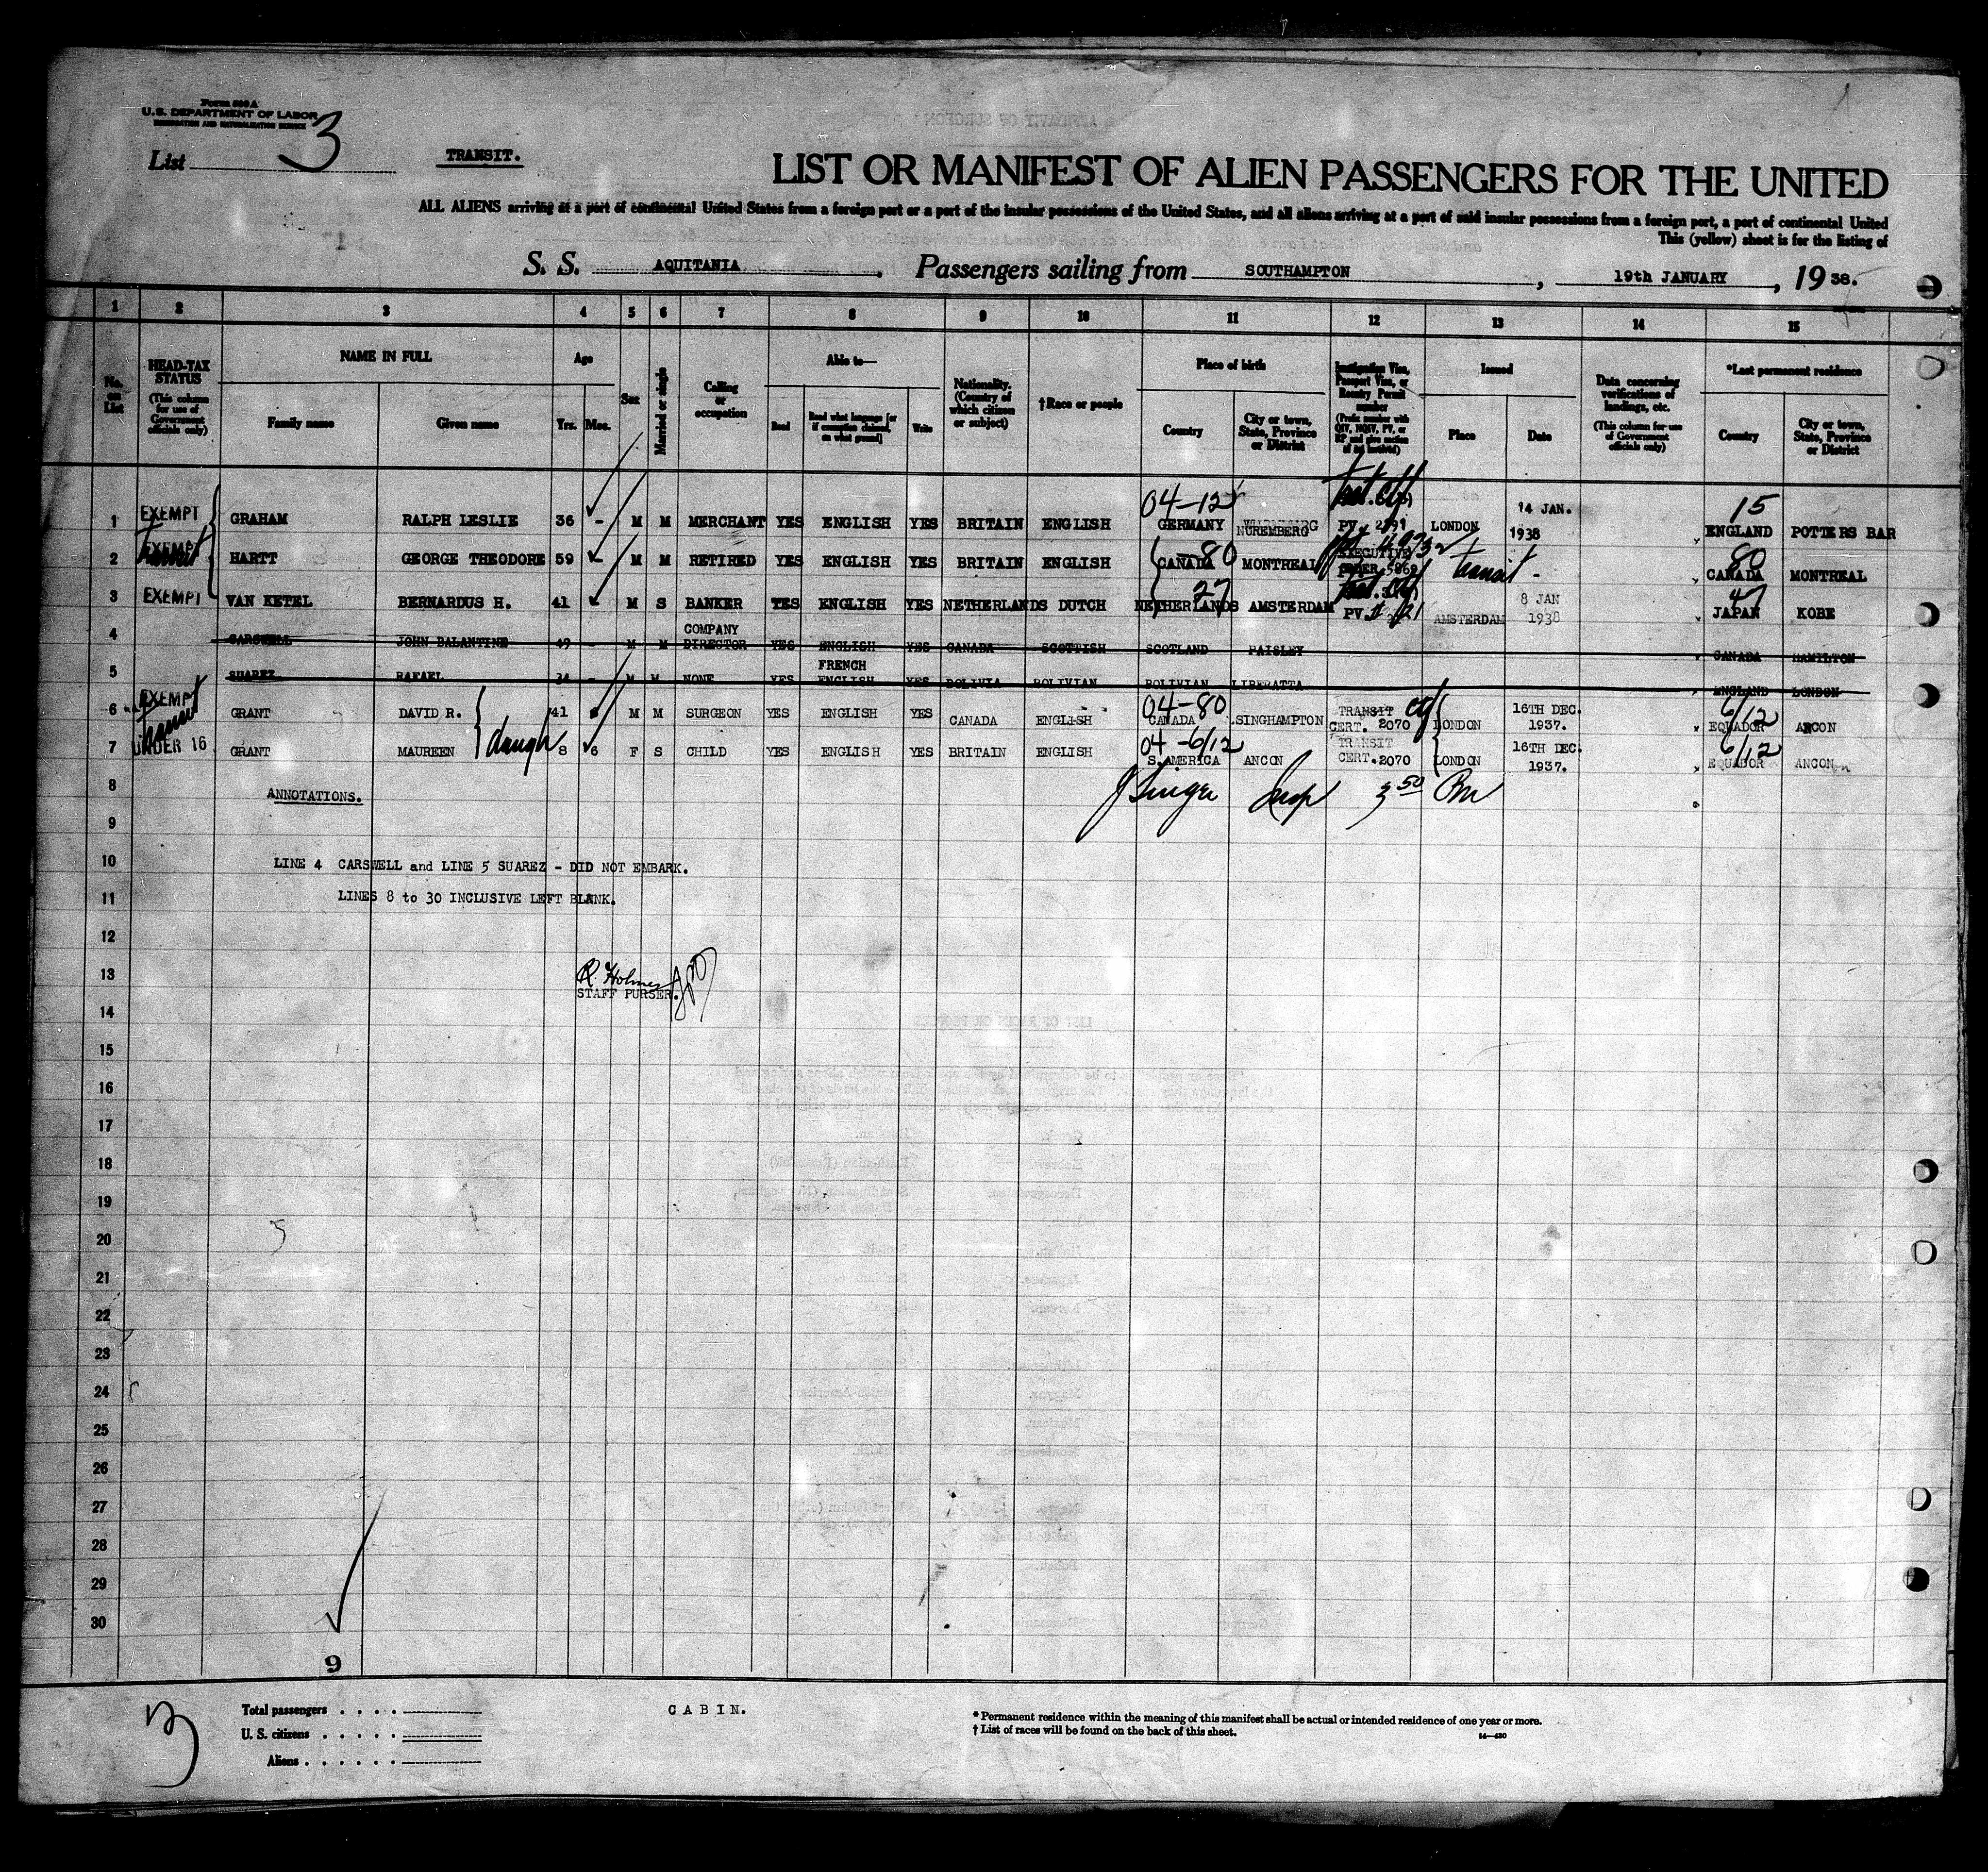 Form 500 A
U.S. DEPARTMENT OF LABOR
IMMIGRATION AND NATURALIZATION SERVICE
List 3
TRANSIT.
LIST OR MANIFEST OF ALIEN PASSENGERS FOR THE UNITED
ALL ALIENS arriving at a port of continental United States from a foreign port or a port of the insular possessions of the United States, and all aliens arriving at a port of said insular possessions from a foreign port, a port of continental United
This (yellow) sheet is for the listing of
S. S. AQUITANIA. Passengers sailing from SOUTHAMPTON, 19th JANUARY, 1938.
1 2 3 4 5 6 7 8 9 10 11 12 13 14 15
No. on List
HEAD-TAX STATUS (This column for use of Government officials only)
NAME IN FULL
Family name
Given name
Age
Yrs. Mos.
Sex
Married or single
Calling or occupation
Able to—
Read
Read what language [or if exemption claimed, on what ground]
Write
Nationality. (Country of which citizen or subject)
†Race or people
Place of birth
Country
City or town, State, Province or District
Immigration Visa, Passport Visa, or Reentry Permit number
(Prefix number with QIV, NQIV, PV, or RP and give section of act involved)
Issued
Place
Date
Data concerning verifications of landings, etc. (This column for use of Government officials only)
*Last permanent residence
Country
City or town, State, Province or District
04-12 15
1 EXEMPT GRAHAM RALPH LESLIE 36 - M M MERCHANT YES ENGLISH YES BRITAIN ENGLISH GERMANY NUREMBERG PV LONDON 14 JAN. 1938 ENGLAND POTTERS BAR
2 EXEMPT HARTT GEORGE THEODORE 59 - M M RETIRED YES ENGLISH YES BRITAIN ENGLISH CANADA -80 MONTREAL EXECUTIVE ORDER 5869 transit - 80 CANADA MONTREAL
3 EXEMPT VAN KETEL BERNARDUS H. 41 M S BANKER YES ENGLISH YES NETHERLANDS DUTCH NETHERLANDS 27 AMSTERDAM PV AMSTERDAM 8 JAN 1938 JAPAN KOBE
4 CARSWELL JOHN BALANTINE 49 - M M COMPANY DIRECTOR YES ENGLISH YES CANADA SCOTTISH SCOTLAND PAISLEY CANADA HAMILTON
5 SUAREZ RAFAEL 34 - M M NONE YES FRENCH ENGLISH YES BOLIVIA BOLIVIAN BOLIVIAN LIBERATTA ENGLAND LONDON
6 EXEMPT transit GRANT DAVID R. 41 M M SURGEON YES ENGLISH YES CANADA ENGLISH 04-80 CANADA SINGHAMPTON TRANSIT CERT. 2070 LONDON 16TH DEC. 1937. 6/12 EQUADOR ANCON
7 UNDER 16 GRANT MAUREEN daugh 8 6 F S CHILD YES ENGLISH YES BRITAIN ENGLISH 04-6/12 S.AMERICA ANCON TRANSIT CERT. 2070 LONDON 16TH DEC. 1937. 6/12 EQUADOR ANCON
8 ANNOTATIONS. J Singer Insp 3 50 Pm
9
10 LINE 4 CARSWELL and LINE 5 SUAREZ - DID NOT EMBARK.
11 LINES 8 to 30 INCLUSIVE LEFT BLANK.
12
13 R. Holmes
STAFF PURSER.
14
15
16
17
18
19
20
21
22
23
24
25
26
27
28
29
30
9
3
Total passengers . . . .
U. S. citizens . . . . .
Aliens . . . . . .
CABIN.
* Permanent residence within the meaning of this manifest shall be actual or intended residence of one year or more.
† List of races will be found on the back of this sheet.
14—430